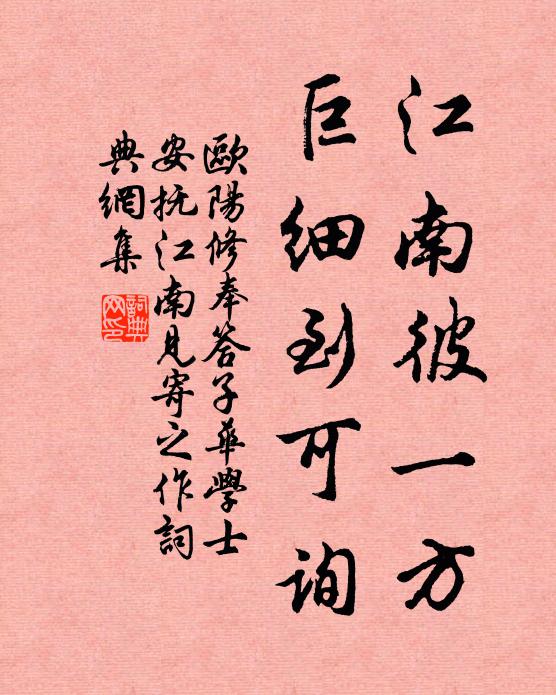 江南彼一方
巨细到可询
歐陽修奉答子華學士
安抚江南見寄之作詞
典網集
詞典网印